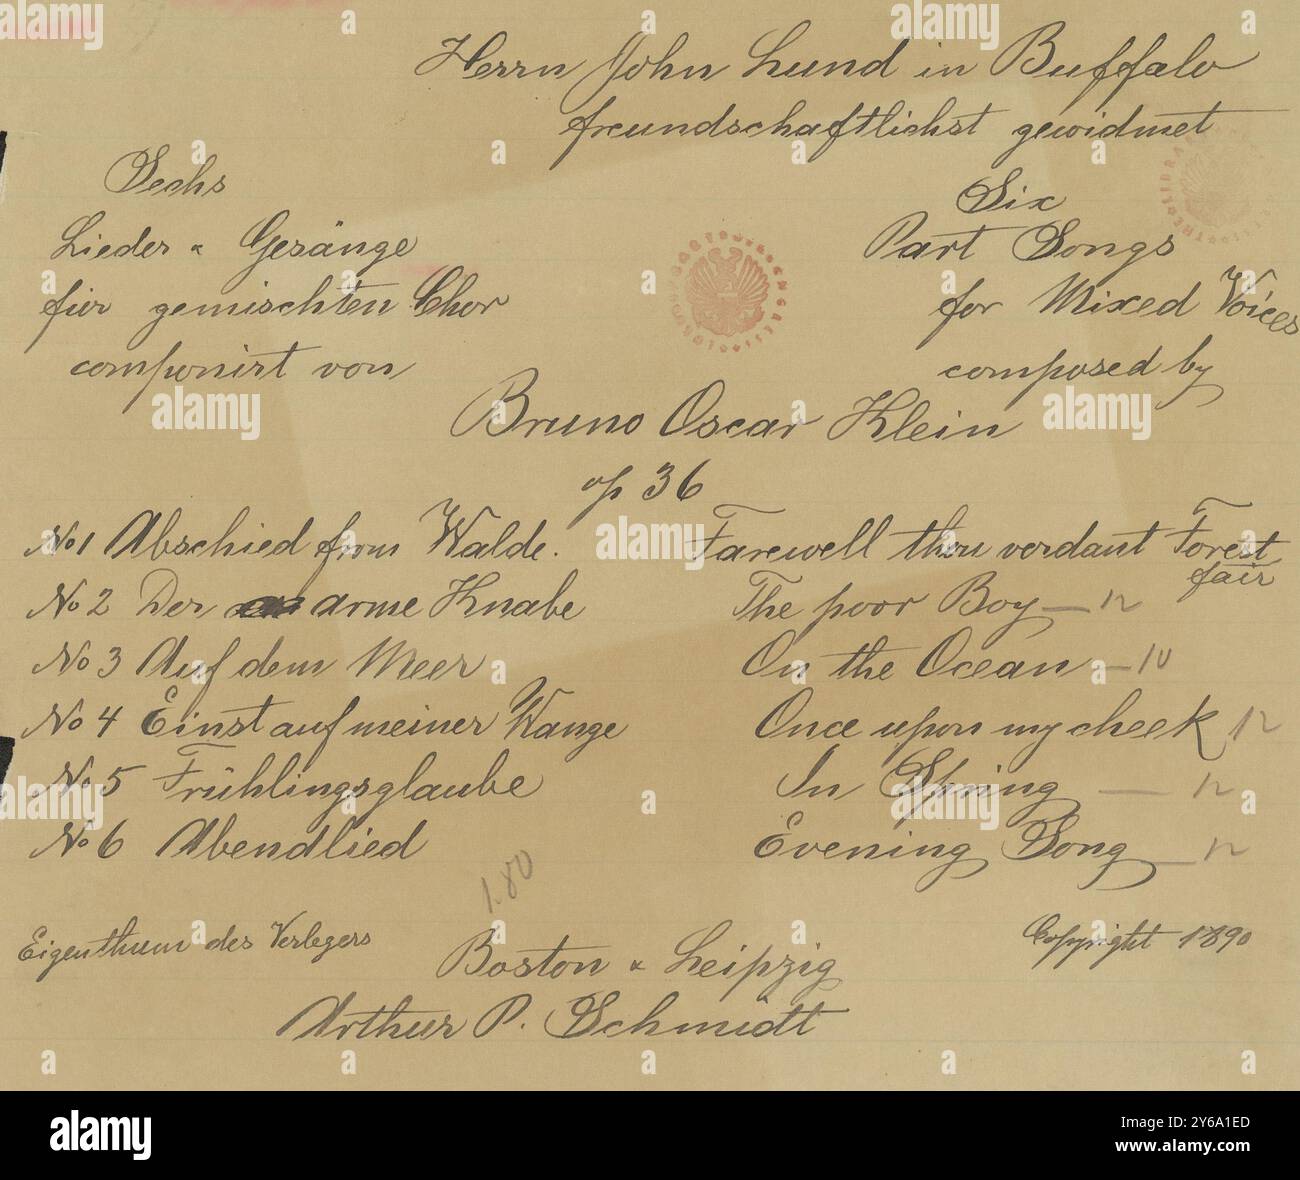 Herrn John Lund in Buffalo
freundschaftlichst gewidmet
Sechs
Lieder & Gesänge
für gemischten Chor
componirt von
Six
Part Songs
for Mixed Voices
composed by
Bruno Oscar Klein
op 36
No 1 Abschied from Walde. Farewell thou verdant Forest fair
No 2 Der arme Knabe The poor Boy — 12
No 3 Auf dem Meer On the Ocean — 10
No 4 Einst auf meiner Wange Once upon my cheek 12
No 5 Frühlingsglaube In Spring — 12
No 6 Abendlied Evening Song — 12
1.80
Eigenthum des Verlegers
Copyright 1890
Boston & Leipzig
Arthur P. Schmidt
alamy
Image ID: 2Y6A1ED
www.alamy.com